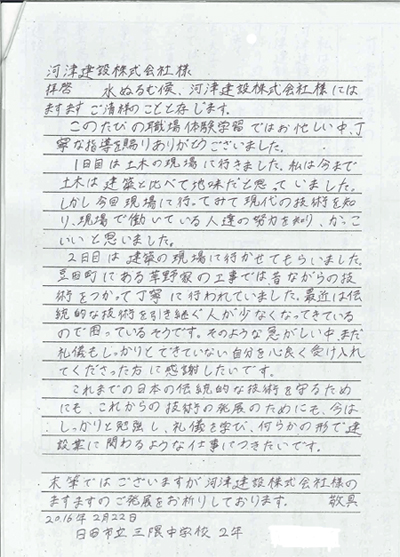 河津建設株式会社様
拝啓　水ぬるむ候、河津建設株式会社様には
ますますご清祥のことと存じます。
このたびの職場体験学習ではお忙しい中、丁
寧な指導を賜りありがとうございました。
1日目は土木の現場に行きました。私は今まで
土木は建築と比べて地味だと思っていました。
しかし今回現場に行ってみて現代の技術を知
り、現場で働いている人達の努力を知り、かっこ
いいと思いました。
2日目は建築の現場に行かせてもらいました。
豆田町にある草野家の工事では、昔ながらの技
術をつかって丁寧に行われていました。最近は伝
統的な技術を引き継ぐ人が少なくなってきている
ので困っているそうです。そのような忙しい中、まだ
礼儀もしっかりとできていない自分を心良く受け入れ
てくださった方に感謝したいです。
これまでの日本の伝統的な技術を守るため
にも、これからの技術の発展のためにも、今は
しっかりと勉強し、礼儀を学び、何らかの形で建
設業に関わるような仕事につきたいです。
末筆ではございますが河津建設株式会社様の
ますますのご発展をお祈りしております。　敬具
2016年2月22日
日田市立三隈中学校 2年